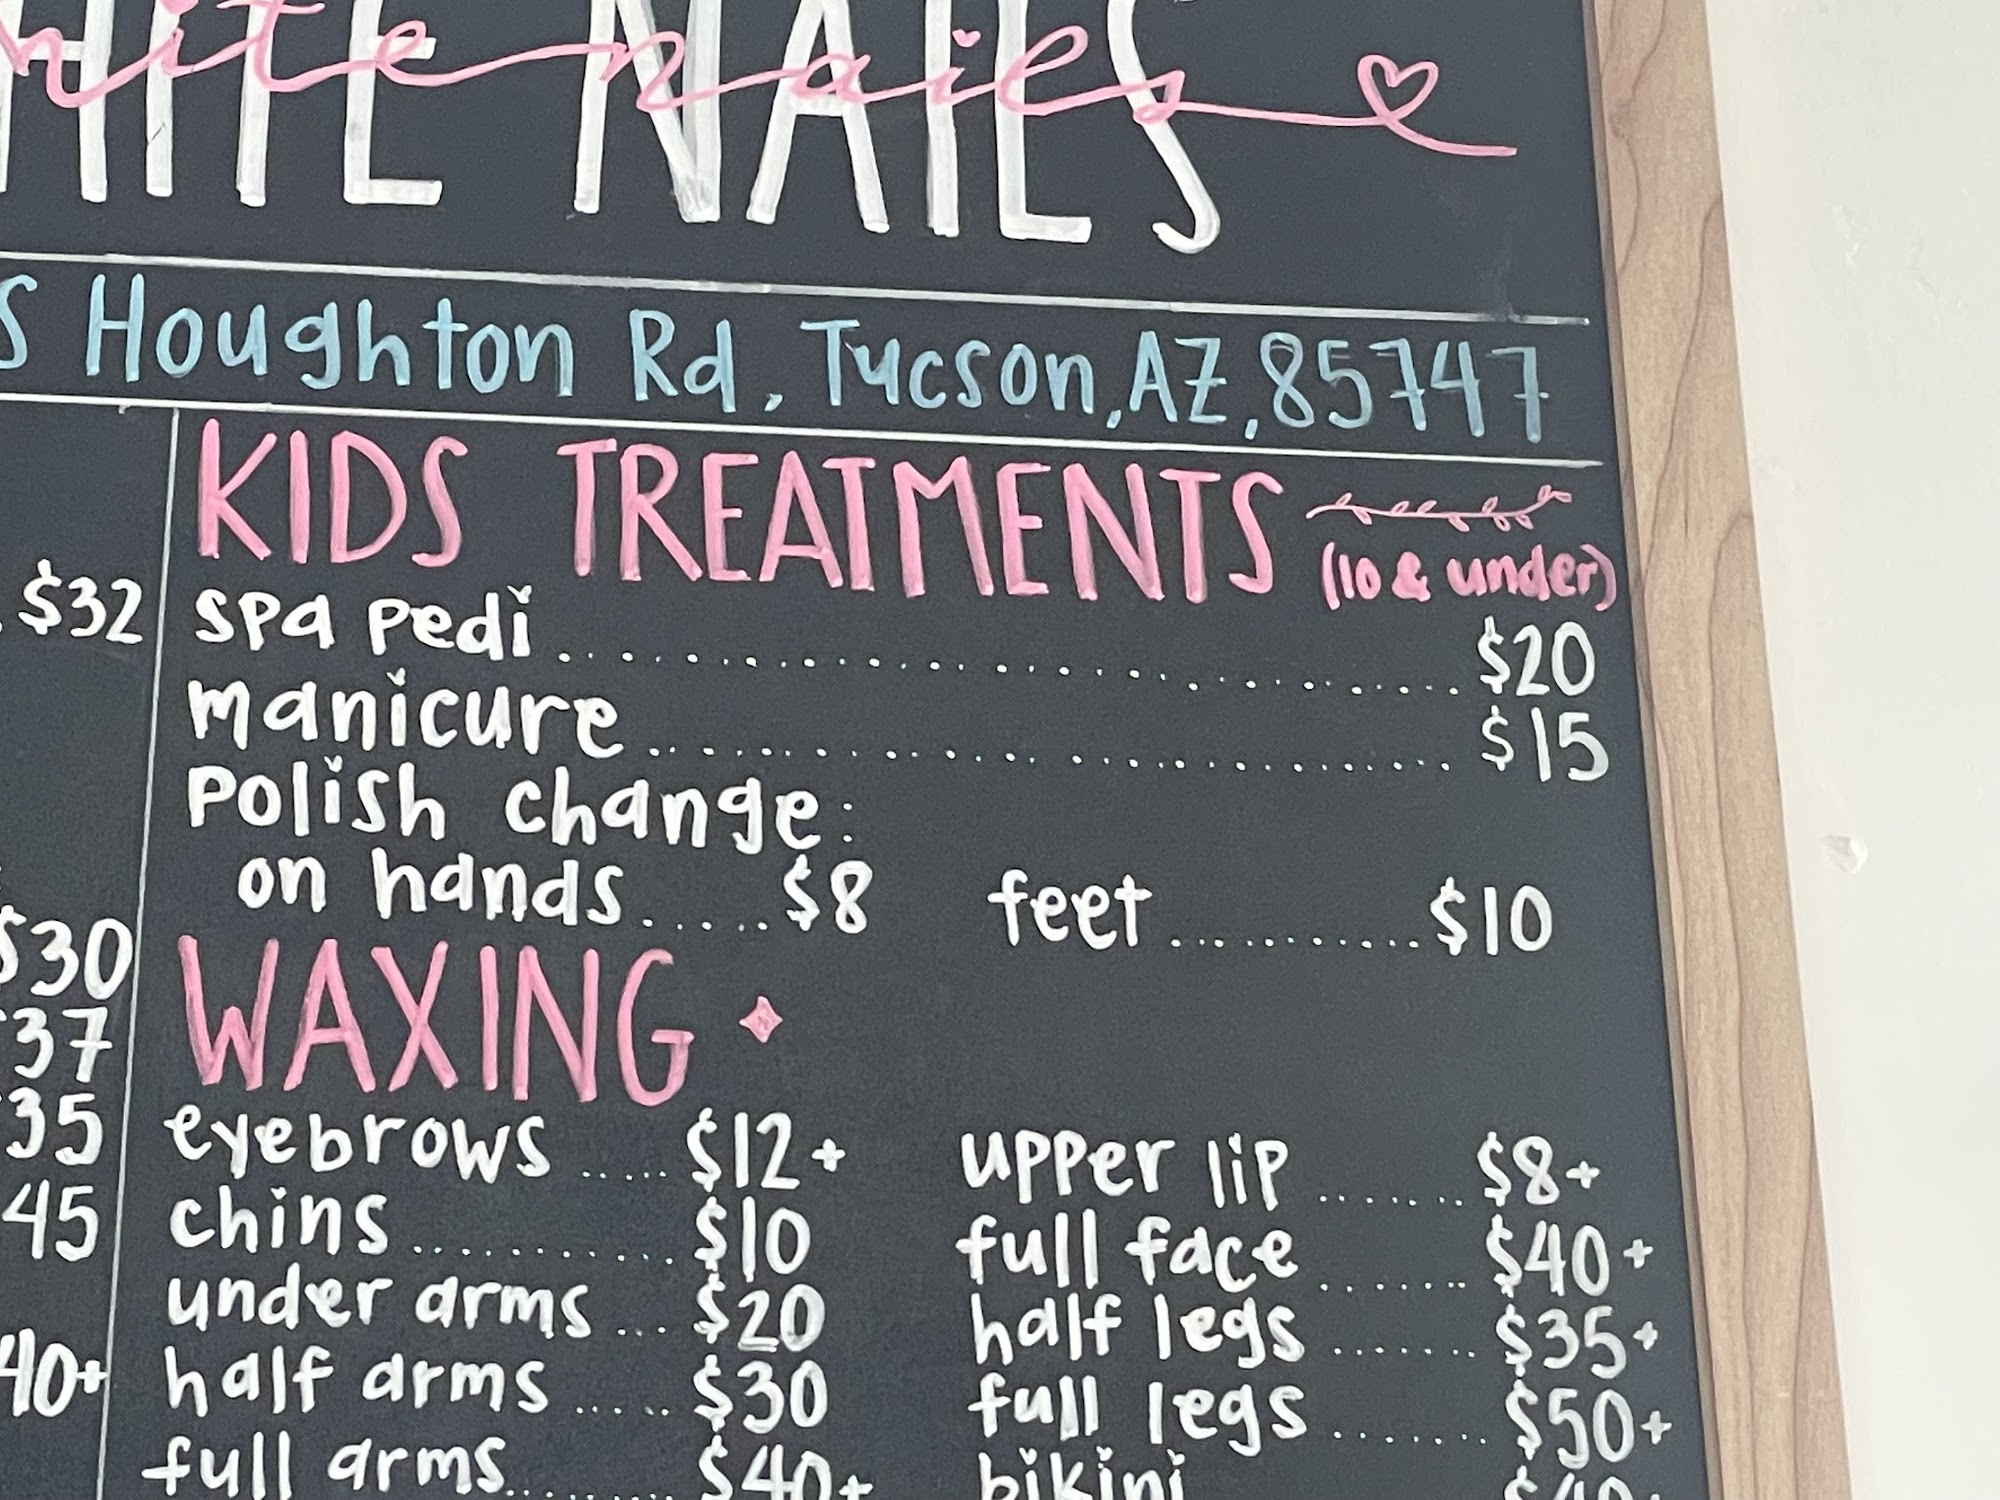 HITE NAILS
hite nails
S Houghton Rd, Tucson, AZ, 85747
$32
$30
37
35
45
40+
KIDS TREATMENTS
(10 & under)
spa pedi ........ $20
manicure ........ $15
polish change:
on hands ..... $8 feet .......... $10
WAXING
eyebrows ..... $12+ upper lip ....... $8+
chins .......... $10 full face ....... $40+
under arms ... $20 half legs ....... $35+
half arms ..... $30 full legs ....... $50+
full arms ........ $40+ bikini